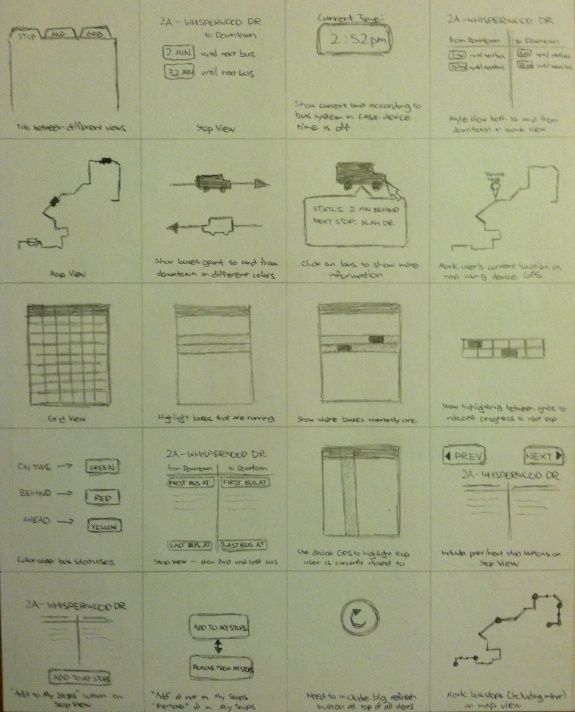 STOP MAP GRID
Tab between different views
2A - WHISPERWOOD DR
to Downtown
2 MIN until next bus
32 MIN until next bus
Stop View
Current Time:
2:52pm
Show current time according to
bus system in case device
time is off
2A - WHISPERWOOD DR
from Downtown to Downtown
until next bus until next bus
until next bus until next bus
Maybe show both to and from
downtown in same view
Map View
Show buses going to and from
downtown in different colors
STATUS: 2 MIN BEHIND
NEXT STOP: BLAH DR.
Click on bus to show more
information
Mark user's current location on
map using device GPS
Grid View
Highlight buses that are running
Show where buses currently are
Show highlighting between grids to
indicate progress to next stop
ON TIME → GREEN
BEHIND → RED
AHEAD → YELLOW
Color code bus statuses
2A - WHISPERWOOD DR
from Downtown to Downtown
FIRST BUS AT FIRST BUS AT
LAST BUS AT LAST BUS AT
Stop View - show first and last bus
Use device GPS to highlight stop
user is currently closest to
PREV NEXT
2A - WHISPERWOOD DR
Include prev/next stop buttons on
Stop View
2A - WHISPERWOOD DR
ADD TO MY STOPS
"Add to My Stops" button on
Stop View
ADD TO MY STOPS
REMOVE FROM MY STOPS
"Add" if not in My Stops
"Remove" if in My Stops
Need to include big refresh
button at top of all views
Mark bus stops (including minor)
on map view